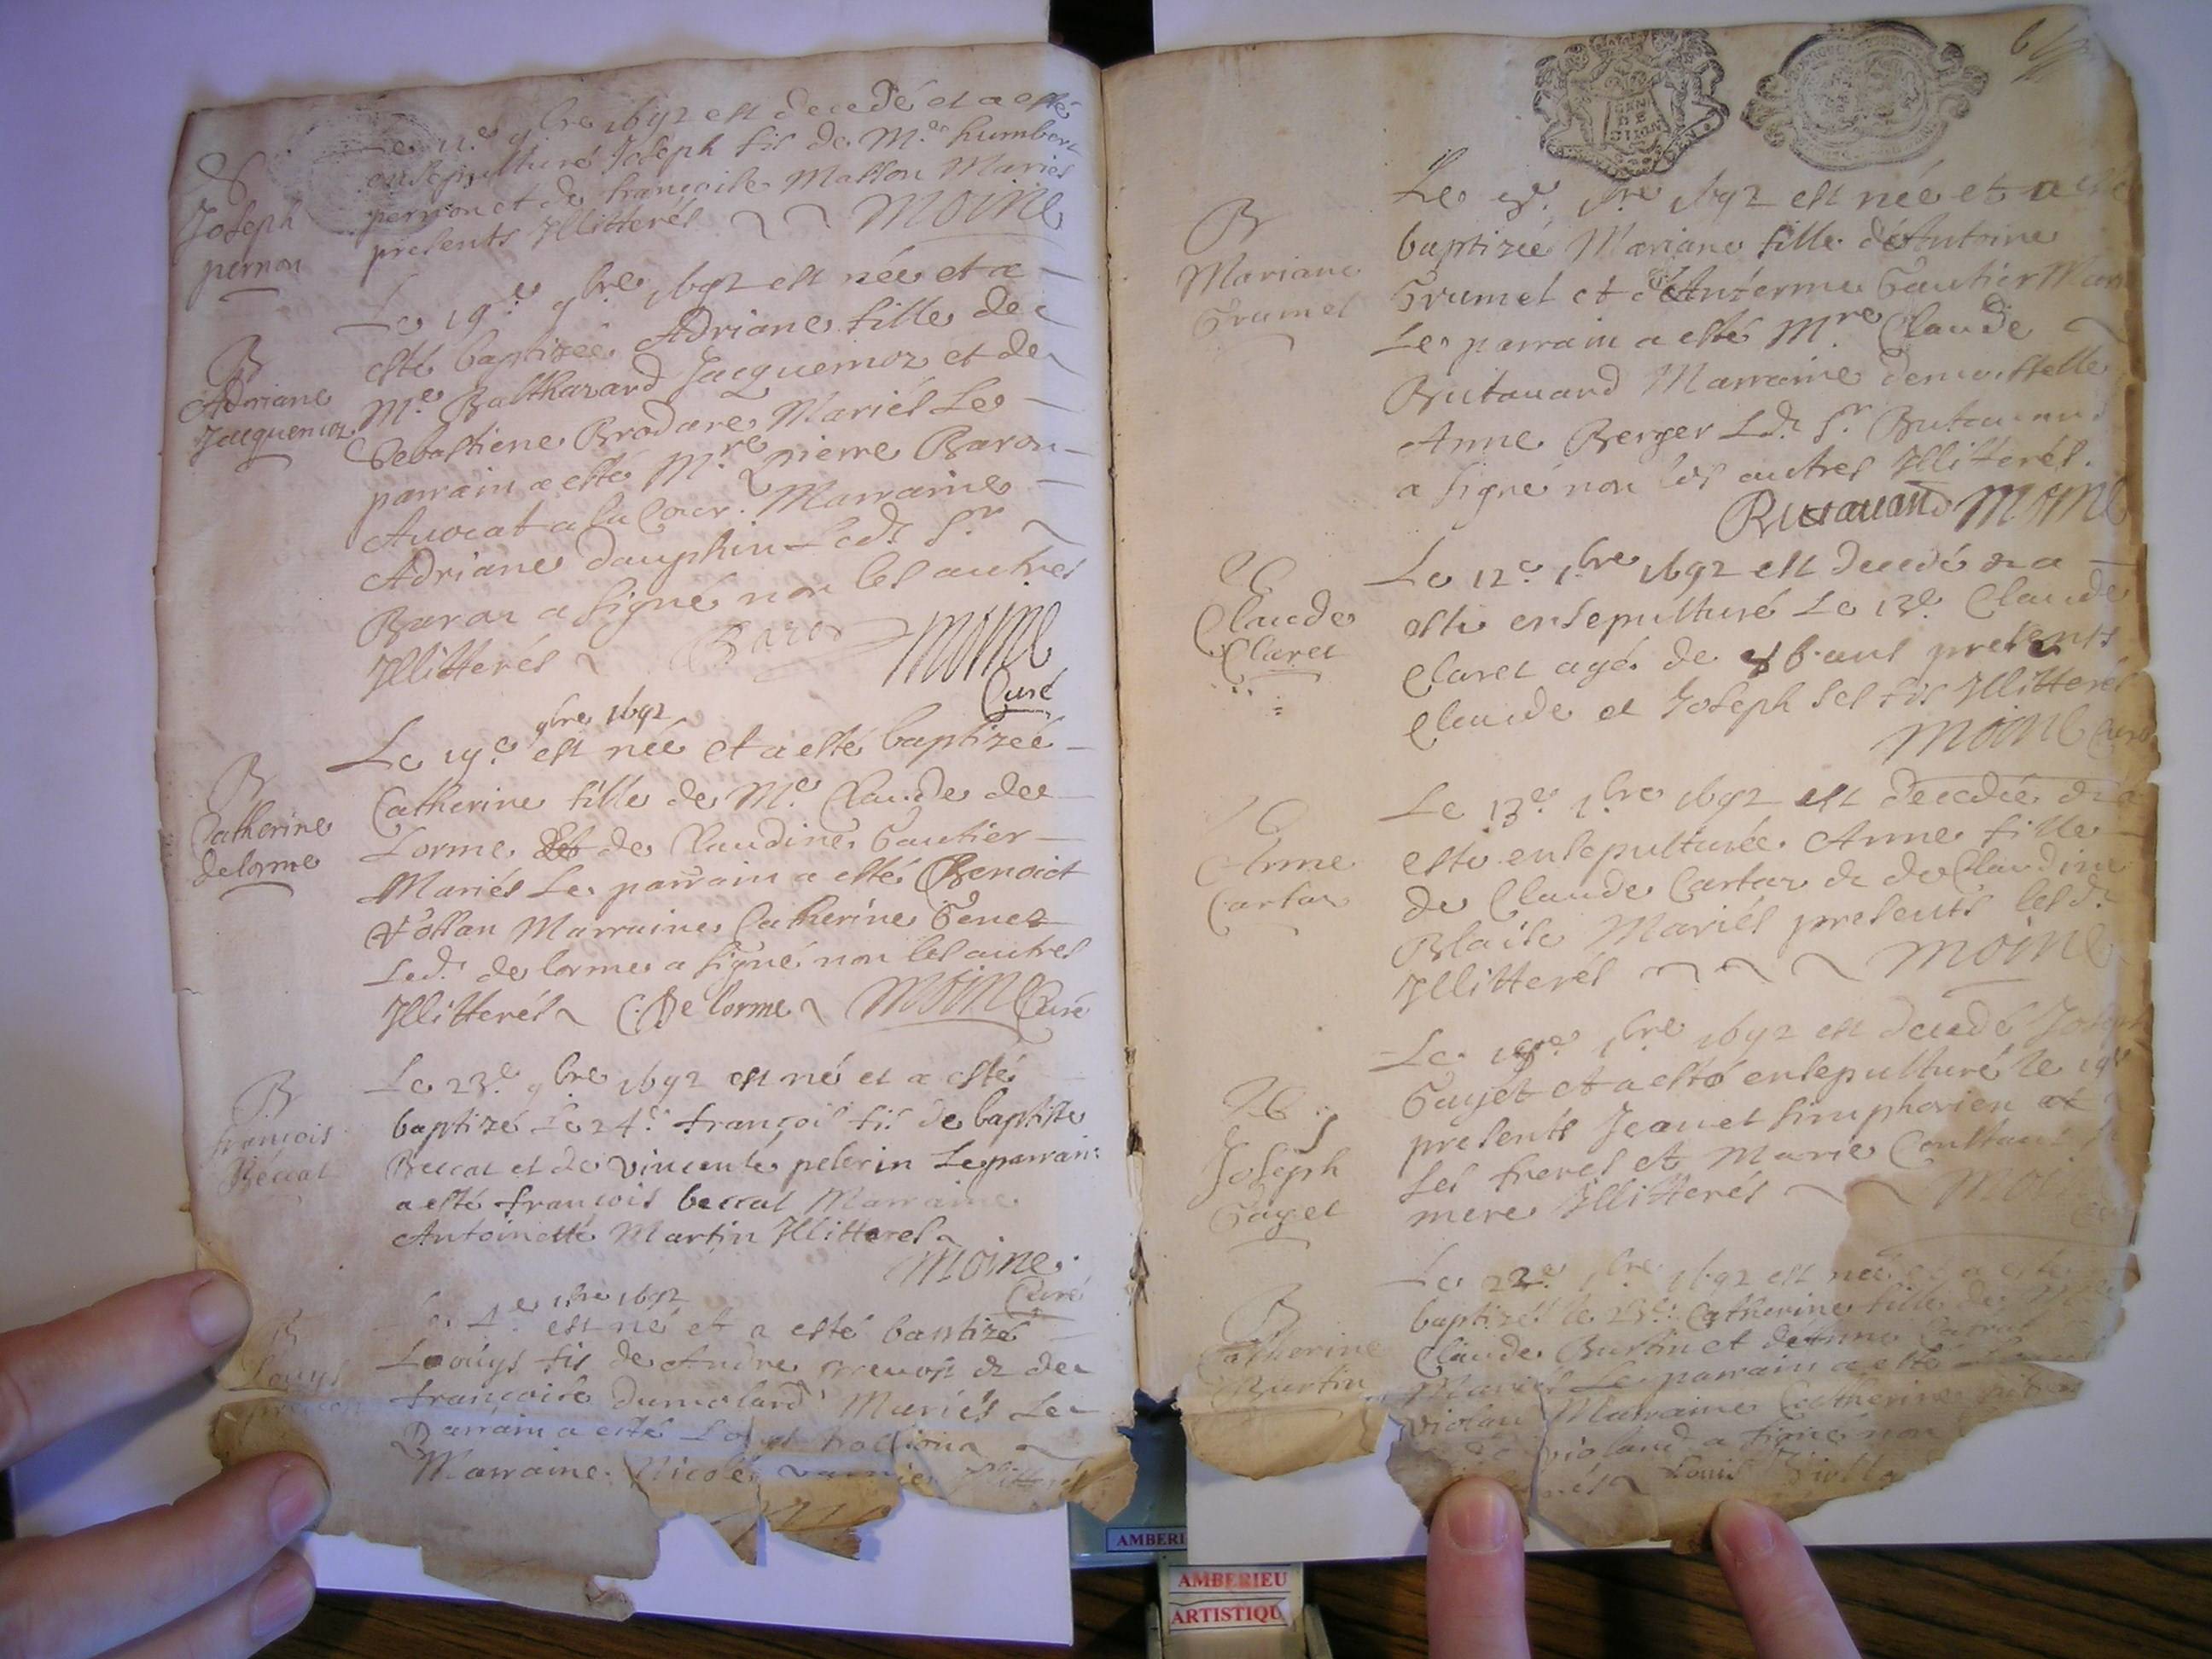 Joseph
pernon
Le 11.e 9bre 1692 est decedé et a esté
ensepulturé Joseph fis de M.e humbert
pernon et de françoise Masson Mariés
presents Illitterés Moine
B
Adriane
Jacquemoz
Le 19.e 9bre 1692 est née et a
esté baptizée Adriane fille de
M.e Balthazard Jacquemoz et de
Sebastiene Brodare Mariés Le
parrain a esté M.re pierre Baron
Auocat a la Cour. Marraine
Adriane dauphin Led. Sr
Baron a signé non les autres
Illitterés Baron Moine
Curé
B
Catherine
delorme
9bre 1692
Le 19.e est née et a esté baptizée
Catherine fille de M.e Claude de
Lorme Et de Claudine Gautier
Mariés Le parrain a esté Benoict
Marraine Catherine
Led. de lorme a signé non les autres
Illitterés C. De lorme Moine Curé
B
françois
Beccat
Le 23.e 9bre 1692 est né et a esté
baptizé Le 24.e françois fis de baptiste
Beccat et de vincente pelerin Le parrain
a esté françois beccat Marraine
Antoinette Martin Illitterés
Moine
Curé
B
Louys
1bre 1692
est né et a esté baptizé
Loouys fis de Andre preuost & de
françoise dumolard Mariés Le
Parrain a esté
Marraine Nicole
B
Mariane
Grumet
Le 1bre 1692 est née et a esté
baptizée Mariane fille d'Antoine
Grumet et d'Anterme Gautier
Le parrain a esté M.re Claude
Butauand Marraine demoiselle
Anne Berger Ld. Sr. Butauand
a signé non les autres Illiterés.
Butauand Moine
Claude
Claret
Le 12.e 1bre 1692 est decedé & a
esté ensepulturé Le 13.e Claude
Claret agé de ans presents
Claude et Joseph ses fis Illitterés
Moine Curé
Anne
Cartaz
Le 13.e 1bre 1692 est decedée & a
esté ensepulturée Anne fille
de Claude Cartaz & de Claudine
Blaise Mariés presents lesd.
Illitterés Moine
Joseph
Gayet
Le 1bre 1692 est decedé Joseph
Gayet et a esté ensepulturé le 19e
presents Jean et simphorien
ses freres et Marie Constant
mere Illitterés Moine
B
Catherine
Burtin
Le 22.e 1bre 1692 est née et a esté
baptizée le 23.e Catherine fille de
Claude Burtin et de Anne
Mariés Le parrain a esté
violan Marraine Catherine
violand a signé non
Louis
AMBERI
AMBERIEU
ARTISTIQU